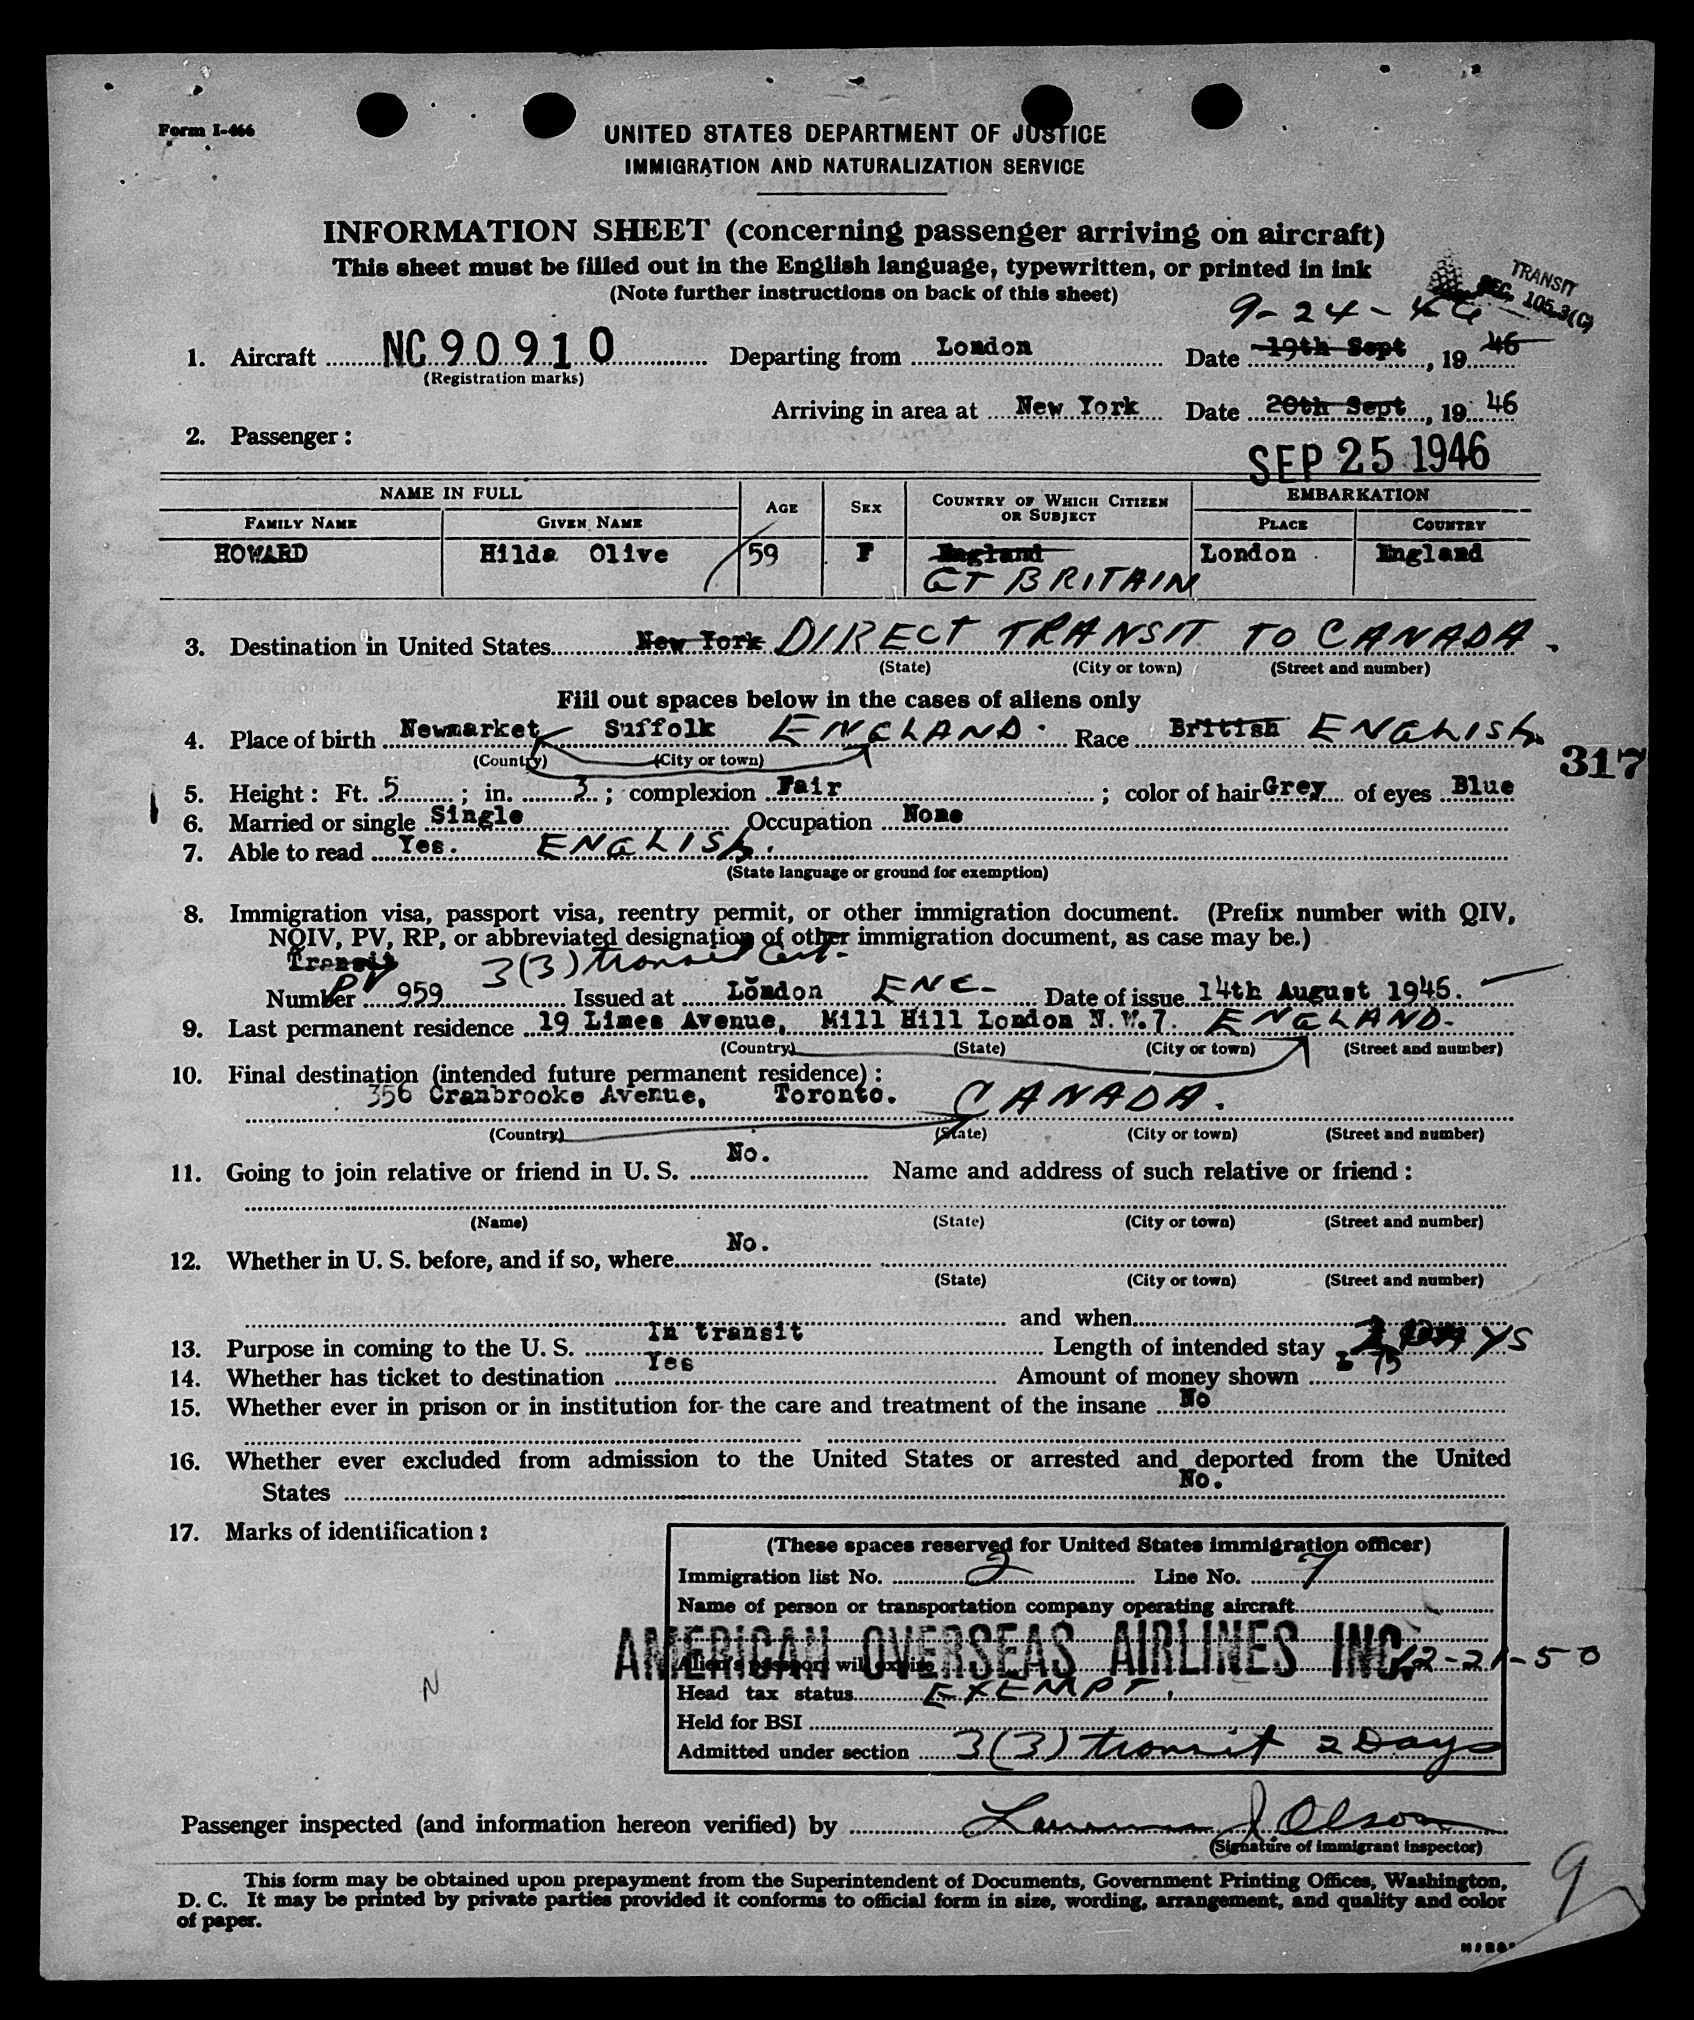 Form I-466
UNITED STATES DEPARTMENT OF JUSTICE
IMMIGRATION AND NATURALIZATION SERVICE
INFORMATION SHEET (concerning passenger arriving on aircraft)
This sheet must be filled out in the English language, typewritten, or printed in ink
(Note further instructions on back of this sheet)
TRANSIT
SEC. 105.3(C)
9-24-46
1. Aircraft NC90910 Departing from London Date 19th Sept, 19 46
(Registration marks)
Arriving in area at New York Date 20th Sept, 19 46
2. Passenger:
SEP 25 1946
NAME IN FULL AGE SEX COUNTRY OF WHICH CITIZEN OR SUBJECT EMBARKATION
FAMILY NAME GIVEN NAME PLACE COUNTRY
HOWARD Hilda Olive 59 F England London England
GT BRITAIN
3. Destination in United States New York DIRECT TRANSIT TO CANADA.
(State) (City or town) (Street and number)
Fill out spaces below in the cases of aliens only
4. Place of birth Newmarket Suffolk ENGLAND. Race British ENGLISH
(Country) (City or town)
317
5. Height: Ft. 5; in. 3; complexion Fair; color of hair Grey of eyes Blue
6. Married or single Single Occupation None
7. Able to read Yes. ENGLISH.
(State language or ground for exemption)
8. Immigration visa, passport visa, reentry permit, or other immigration document. (Prefix number with QIV,
NQIV, PV, RP, or abbreviated designation of other immigration document, as case may be.)
Transit 3(3) transit Cert.
Number PV 959 Issued at London ENG- Date of issue 14th August 1946.
9. Last permanent residence 19 Limes Avenue, Mill Hill London N.W.7. ENGLAND.
(Country) (State) (City or town) (Street and number)
10. Final destination (intended future permanent residence):
356 Cranbrooke Avenue, Toronto. CANADA.
(Country) (State) (City or town) (Street and number)
11. Going to join relative or friend in U. S. No. Name and address of such relative or friend:
(Name) (State) (City or town) (Street and number)
12. Whether in U. S. before, and if so, where No.
(State) (City or town) (Street and number)
and when
13. Purpose in coming to the U. S. In transit Length of intended stay 2 DAYS
14. Whether has ticket to destination Yes Amount of money shown 15
15. Whether ever in prison or in institution for the care and treatment of the insane No
16. Whether ever excluded from admission to the United States or arrested and deported from the United
States No.
17. Marks of identification:
(These spaces reserved for United States immigration officer)
Immigration list No. 2 Line No. 7
Name of person or transportation company operating aircraft
AMERICAN OVERSEAS AIRLINES INC.
Alien's passport will expire 12-21-50
Head tax status EXEMPT.
N
Held for BSI
Admitted under section 3(3) transit 2 Days
Passenger inspected (and information hereon verified) by Lawrence J Olson
(Signature of immigrant inspector)
9
This form may be obtained upon prepayment from the Superintendent of Documents, Government Printing Offices, Washington,
D. C. It may be printed by private parties provided it conforms to official form in size, wording, arrangement, and quality and color
of paper.